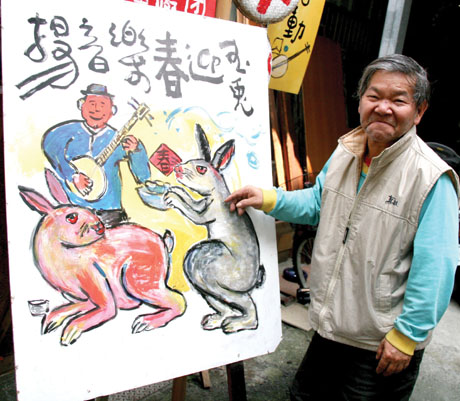 玉兔迎春樂音揚
春
動